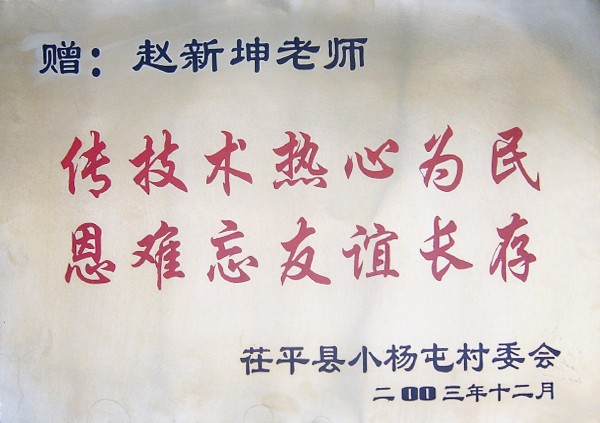 赠：赵新坤老师
传技术热心为民
恩难忘友谊长存
茌平县小杨屯村委会
二00三年十二月